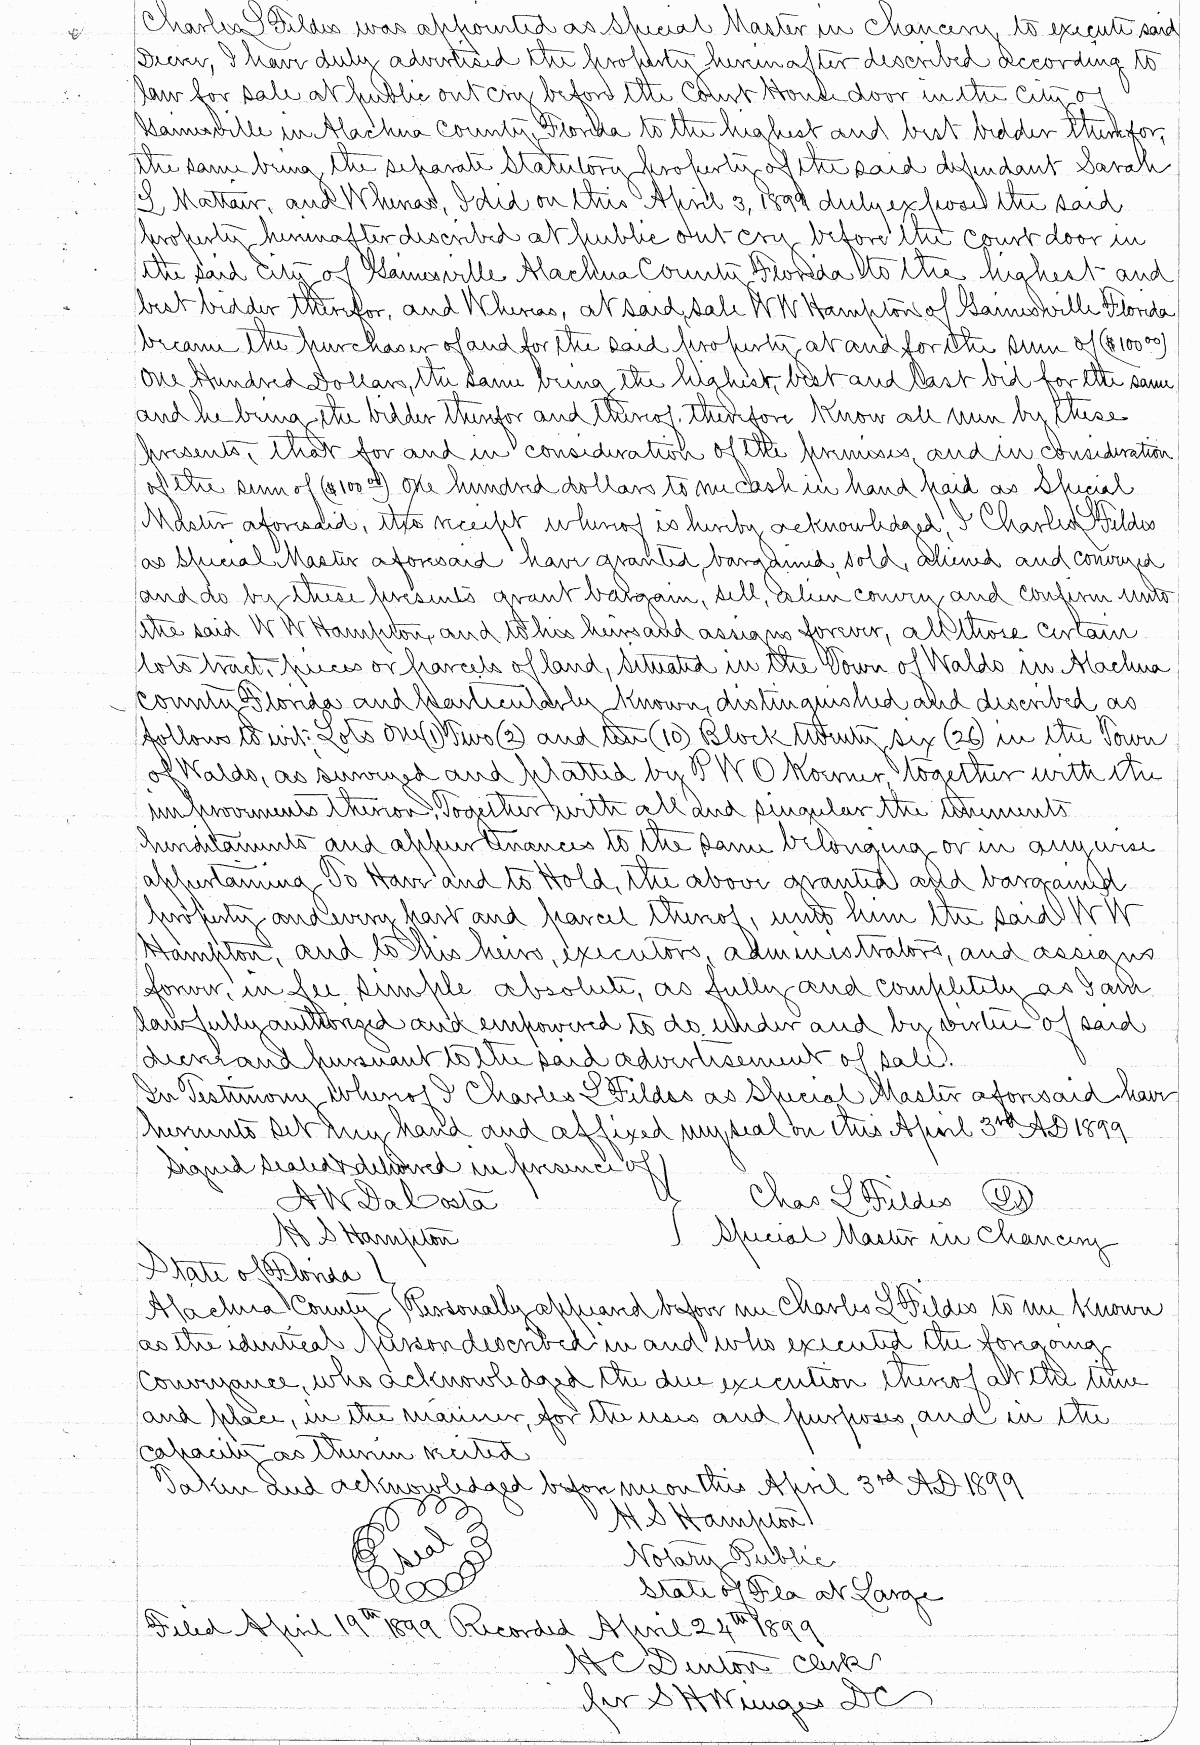 Charles L Fildes was appointed as Special Master in Chancery, to execute said
Decree, I have duly advertised the property hereinafter described according to
law for sale at public out cry before the Court House door in the City of
Gainesville in Alachua County, Florida to the highest and best bidder therefor,
the same being the separate Statutory property of the said defendant Sarah
L Mattair, and Whereas, I did on this April 3, 1899 duly expose the said
property hereinafter described at public out cry before the court door in
the said City of Gainesville Alachua County Florida to the highest and
best bidder therefor, and Whereas, at said sale W W Hampton of Gainesville Florida
became the purchaser of and for the said property at and for the sum of ($100 00)
One Hundred Dollars, the same being the highest, best and last bid for the same
and he being the bidder therefor and thereof, therefore Know all men by these
presents, that for and in consideration of the premises, and in consideration
of the sum of ($100 00) One hundred dollars to me cash in hand paid as Special
Master aforesaid, the receipt whereof is hereby acknowledged, I Charles L Fildes
as Special Master aforesaid have granted, bargained, sold, aliened and conveyed
and do by these presents grant bargain, sell, alien convey and confirm unto
the said W W Hampton, and to his heirs and assigns forever, all those certain
lots tract, pieces or parcels of land, situated in the Town of Waldo in Alachua
County Florida and particularly known, distinguished and described as
follows to wit: Lots One (1) Two (2) and ten (10) Block twenty six (26) in the Town
of Waldo, as surveyed and platted by P W O Koerner, together with the
improvements thereon, Together with all and singular the tenements
hereditaments and appurtenances to the same belonging or in anywise
appertaining To Have and to Hold, the above granted and bargained
property and every part and parcel thereof, unto him the said W W
Hampton, and to his heirs, executors, administrators, and assigns
forever, in fee simple absolute, as fully and completely as I am
lawfully authorized and empowered to do under and by virtue of said
decree and pursuant to the said advertisement of sale.
In Testimony Whereof I Charles L Fildes as Special Master aforesaid have
hereunto set my hand and affixed my seal on this April 3rd AD 1899
Signed sealed & delivered in presence of
A W DaCosta Chas L Fildes LS
H S Hampton Special Master in Chancery
State of Florida
Alachua County Personally appeared before me Charles L Fildes to me known
as the identical person described in and who executed the foregoing
conveyance, who acknowledged the due execution thereof at the time
and place, in the manner, for the uses and purposes, and in the
capacity as therein recited
Taken and acknowledged before me on this April 3rd AD 1899
H S Hampton
seal
Notary Public
State of Fla at Large
Filed April 19th 1899 Recorded April 24th 1899
H C Denton Clerk
per S H Wienges DC